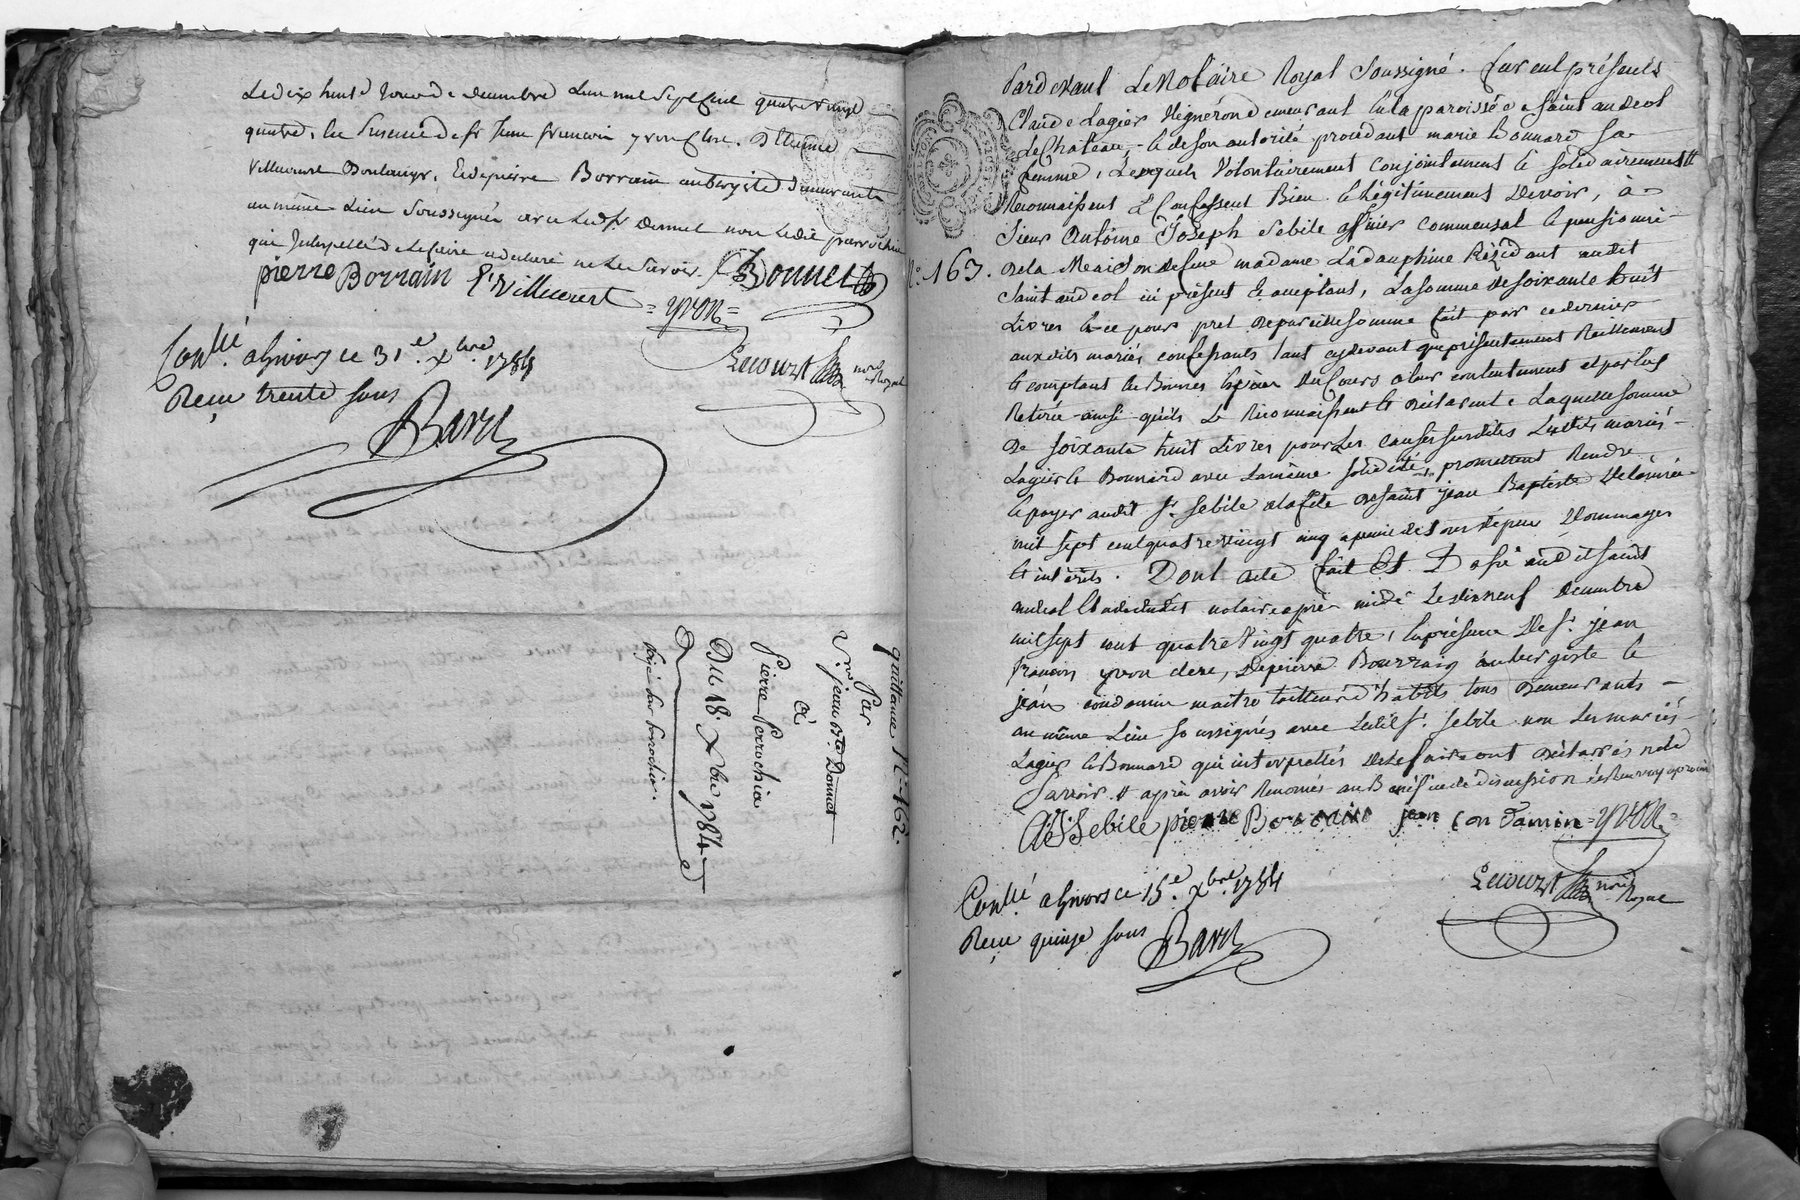 Le dix huit du mois de decembre L'an mil sept cent quatre vingt
quatre, En presence de sr Jean francois yvon Clerc. D'Etienne
Villecourt Boulanger, Et de pierre Borrain aubergiste demeurants
au même Lieu Soussignés avec Ledt sr Donnet non Ledit perrochia
qui Interpellé de le faire a declaré ne le Savoir.
pierre Borrain E Villecourt =yvon= Donnet
Conllé a Givors ce 31e Xbre 1784
Reçu trente sous
Lecourt nore Royal
Barri
quittance No 162.
Par
jean bte Donnet
à
Pierre Perrochia
Du 18. Xbre 1784
Pardevant Le Notaire Royal Soussigné. furent présents
Claude Lagier Vigneron demeurant en la paroisse de Saint andeol
Le Chateau, & de son autorité procedant marie Bonnard sa
femme, Lesquels Volontairement conjointement et solidairement #
Reconnaissent & Confessent Bien & Légitimement Devoir, à
Sieur Antoine Joseph Sebile officier commensal et pensionné
No. 163. De la Maison de feue madame La dauphine Résidant audit
Saint andeol ici présent & acceptant, La somme de soixante huit
Livres & ce pour pret de pareille somme fait par ce dernier
auxdits mariés confessants tant cydevant que présentement Réellement
& comptant en Bonnes Espèces du Cours a leur contentement et par eux
Retirée ainsi qu'ils Le Reconnaissent & déclarent. Laquelle somme
De soixante huit Livres pour Les causes susdites Lesdits mariés
Lagier & Bonnard avec La même solidité, promettent Rendre
& payer audit sr Sebile a la fête de Saint jean Baptiste De l'année
mil sept cent quatre vingt cinq a peine de tous dépens Dommages
& intérêts. Dont acte fait Et Passé audit Saint
andeol Etude dudit notaire après midi Le dix neuf decembre
mil sept cent quatre Vingt quatre, En présence De sr jean
francois yvon clerc, De pierre Bourraing aubergiste &
jean condamin maitre tailleur d'habits tous Demeurants
au même Lieu soussignés avec Ledit sr Sebile non Les mariés
Lagier & Bonnard qui interpellés De Le faire ont déclarés ne le
Savoir. # après avoir Renoncés au Bénéfice de discussion
AJSebile pierre Borrain jean Condamin =yvon=
Conllé a Givors ce 15e Xbre 1784
Reçu quinze sous
Barri
Lecourt nore Royal